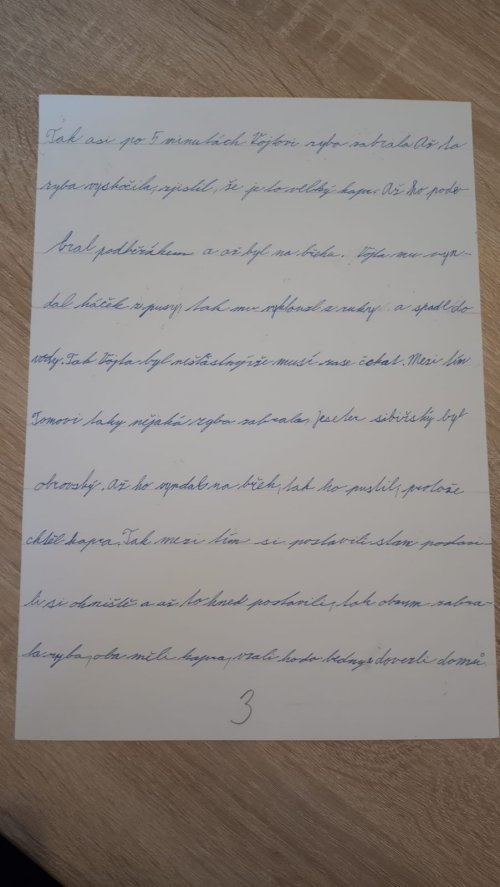 Tak asi po 5 minutách Vojtovi ryba zabrala Až ta
ryba vyskočila, zjistil, že je to velký kapr. Až ho pode
bral podběrákem a až byl na břehu. Vojta mu vyn-
dal háček z pusy, tak mu vyklouzl z ruky a spadl do
vody. Tak Vojta byl nešťastný, že musí zase čekat. Mezi tím
Tomovi taky nějaká ryba zabrala, jeseter sibiřský byl
obrovský. Až ho vyndal na břeh, tak ho pustil, protože
chtěl kapra. Tak mezi tím si postavili stan postavi-
li si ohniště a až to hned postavili, tak oboum zabra-
la ryba, oba měli kapra, vzali ho do bedny a dovezli domů
3